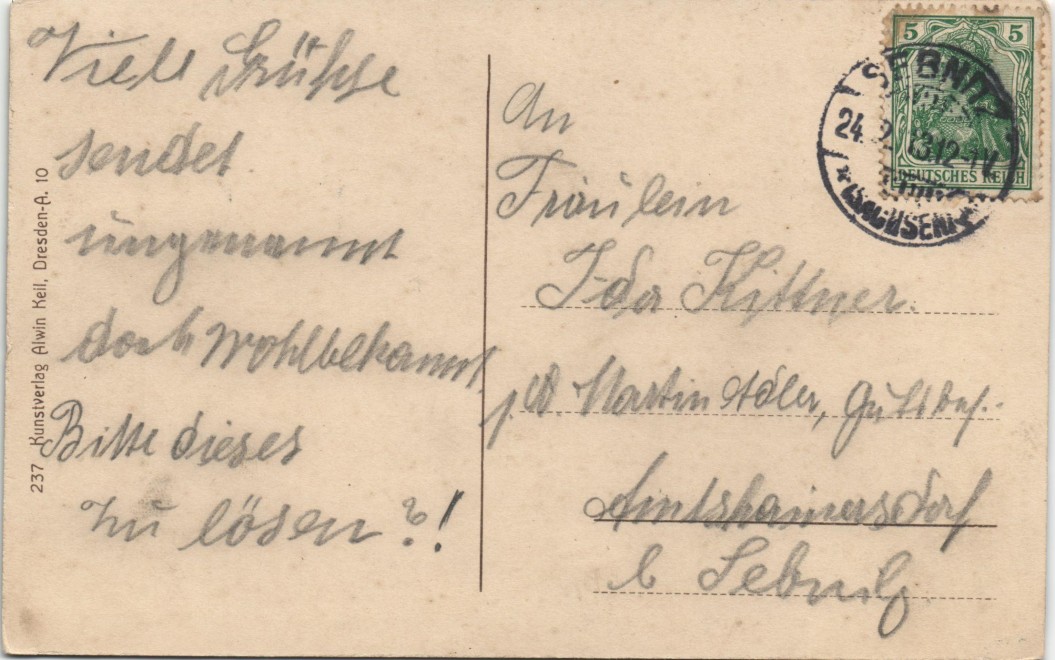 Viele Grüße
sendet
ungenannt
doch wohlbekannt
Bitte dieses
zu lösen?!
An
Fräulein
Ida Kittner.
p. Ad. Martin Adler, Gutsbes.
Amtshainersdorf
b Sebnitz.
5 5
DEUTSCHES REICH
SEBNITZ
24. 2. 13. 12-1 N
* (SACHSEN) *
237 Kunstverlag Alwin Keil, Dresden-A. 10